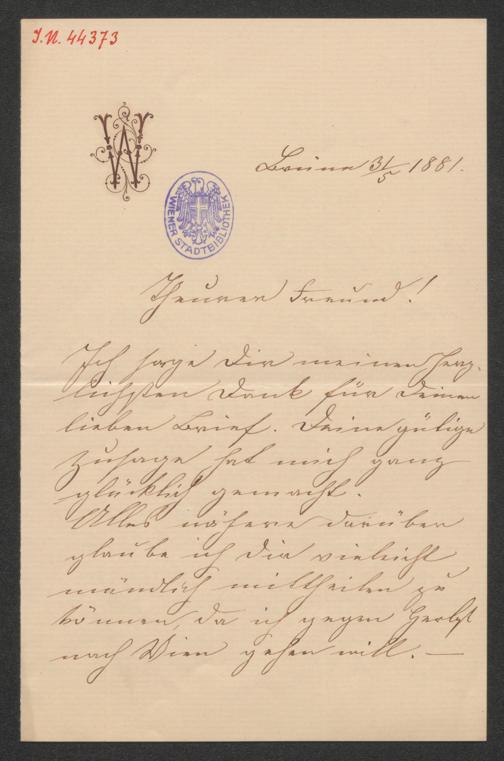 I.N. 44373
WIENER STADTBIBLIOTHEK
Brünn 31/5 1881.
Theurer Freund!
Ich sage Dir meinen herz-
lichsten Dank für Deinen
lieben Brief. Deine gütige
Zusage hat mich ganz
glücklich gemacht.
Alles nähere darüber
glaube ich Dir vielleicht
mündlich mittheilen zu
können, da ich gegen Herbst
nach Wien gehen will. —